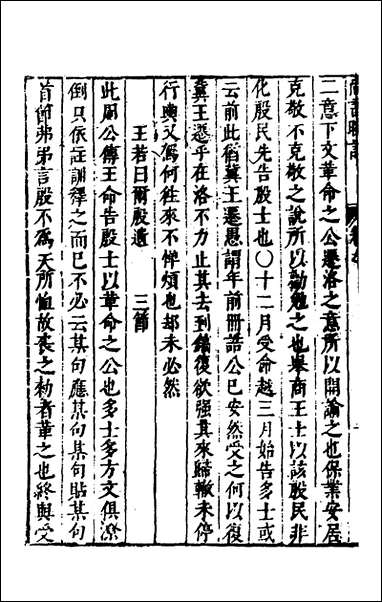 二意下文革命之公遷洛之意所以開諭之也保業安居
克敬不克敬之說所以勸勉之也舉商王士以該殷民非
化殷民先告殷士也〇十二月受命越三月始告多士或
云前此猶冀王遷愚謂年前冊誥公已安然受之何以復
冀王遷乎在洛不力止其去到鎬復欲強其來歸轍未停
行輿又駕何往來不憚煩也却未必然
王若曰爾殷遺 三節
此周公傳王命告殷士以革命之公也多士多方文俱潦
倒只依註訓釋之而已不必云某句應某句某句貼某句
首節弗弔言殷不為天所恤故喪之勑者革之也終與受